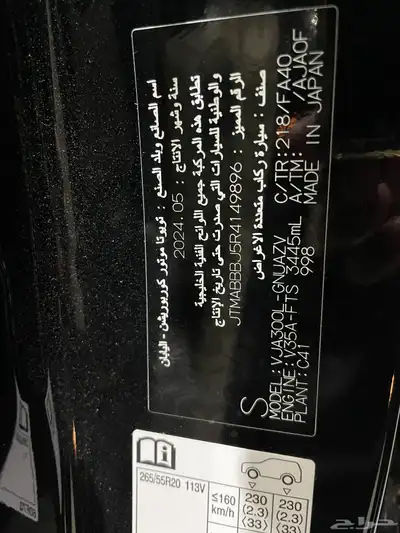 اسم الصانع وبلد الصنع : تويوتا موتور كوربوريشن - اليابان
سنة وشهر الانتاج : 2024.05
تطابق هذه المركبة جميع اللوائح الفنية الخليجية
والوطنية للسيارات التي صدرت حتى تاريخ الإنتاج
الرقم المميز : JTMABBBJ5R4149896
صنف : سيارة ركاب متعددة الاغراض
S
MODEL:VJA300L-GNUAZV C/TR:218/FA40
ENGINE:V35A-FTS 3445mL A/TM: /AJA0F
PLANT:C41 998 MADE IN JAPAN
265/55R20 113V
≤160 km/h
230 (2.3) ⟨33⟩
230 (2.3) ⟨33⟩
حراج